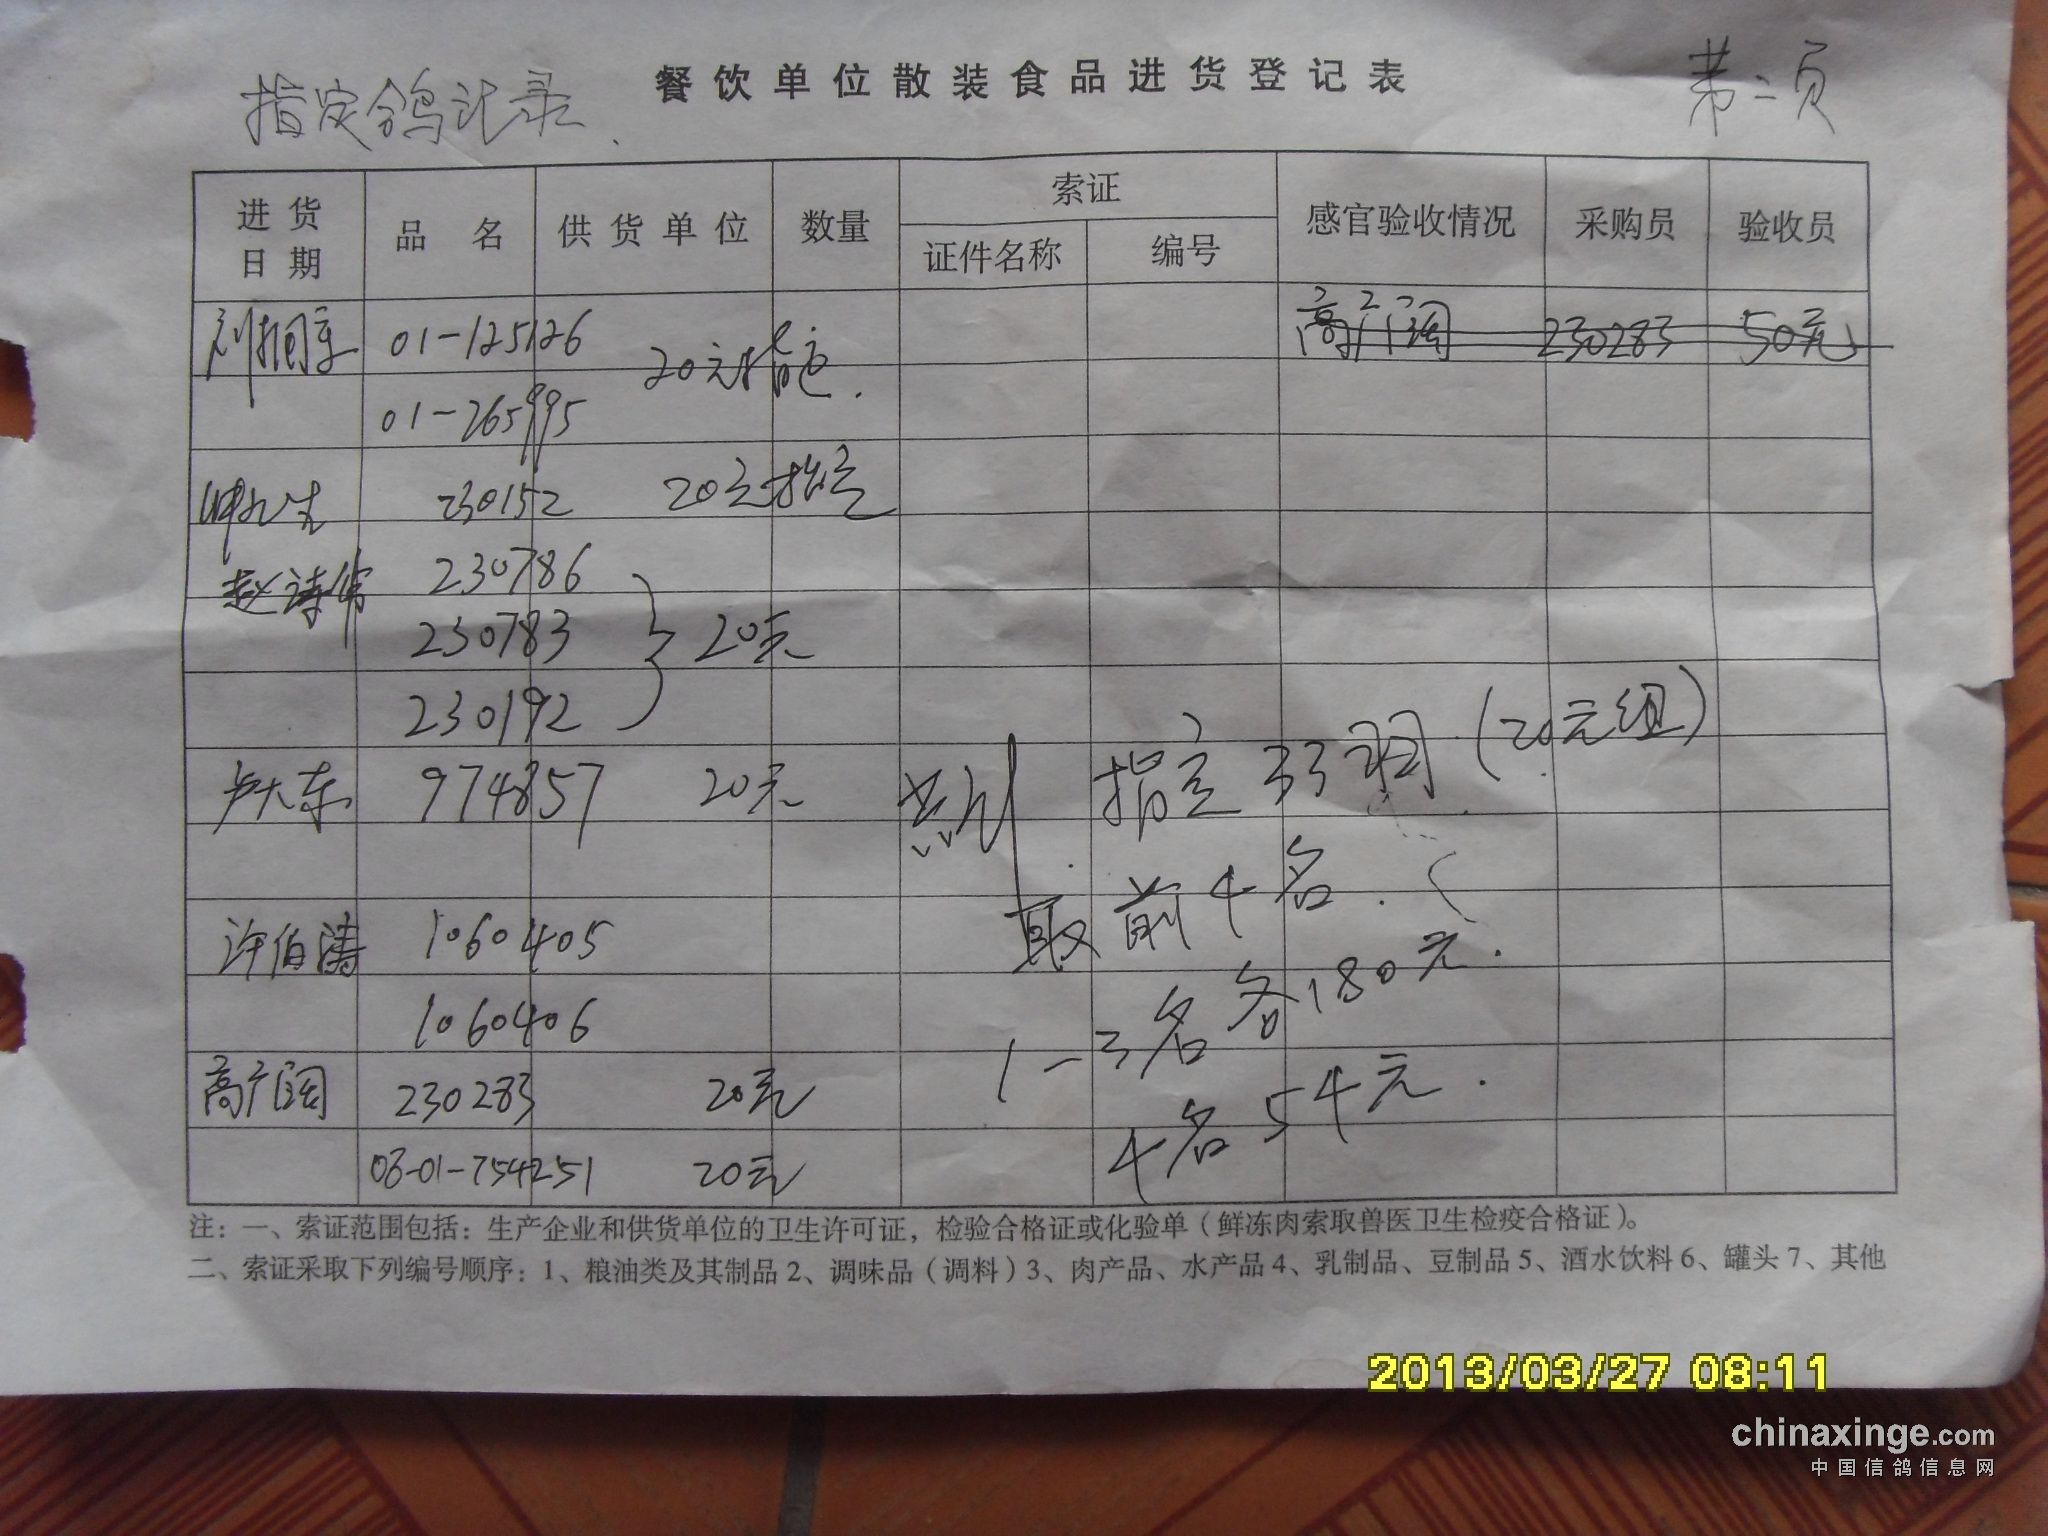 指定鸽记录.
餐饮单位散装食品进货登记表
第二页
进货日期 品名 供货单位 数量 索证 感官验收情况 采购员 验收员
证件名称 编号
01-125126 20元指定.
高广阔 230283 50元
01-265995
230152 20元指定
赵诗伟 230786
230783 20元
230192
卢大东 974857 20元
共计 指定33羽(20元组)
取前4名.(
许伯涛 1060405
1-3名各180元.
1060406
高广阔 230283 20元
4名54元.
08-01-754251 20元
注:一、索证范围包括:生产企业和供货单位的卫生许可证,检验合格证或化验单(鲜冻肉索取兽医卫生检疫合格证)。
二、索证采取下列编号顺序:1、粮油类及其制品2、调味品(调料)3、肉产品、水产品4、乳制品、豆制品5、酒水饮料6、罐头7、其他
2013/03/27 08:11
chinaxinge.com
中国信鸽信息网